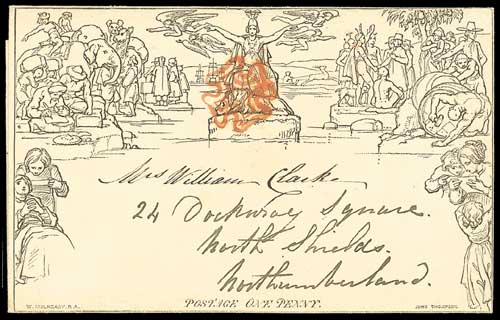 Mrs William Clark
24 Dockwray Square.
North Shields.
Northumberland.
POSTAGE ONE PENNY.
W. MULREADY. R.A.
JOHN THOMPSON